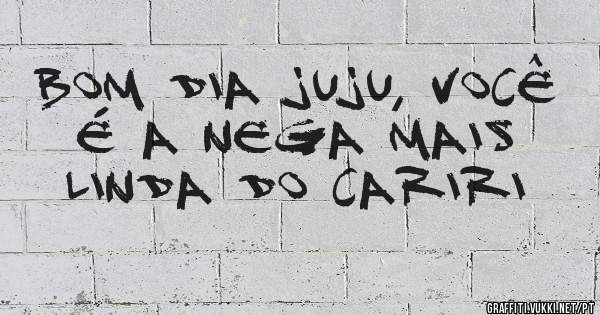 BOM DIA JUJU, VOCÊ
É A NEGA MAIS
LINDA DO CARIRI
GRAFFITI.VUKKI.NET/PT